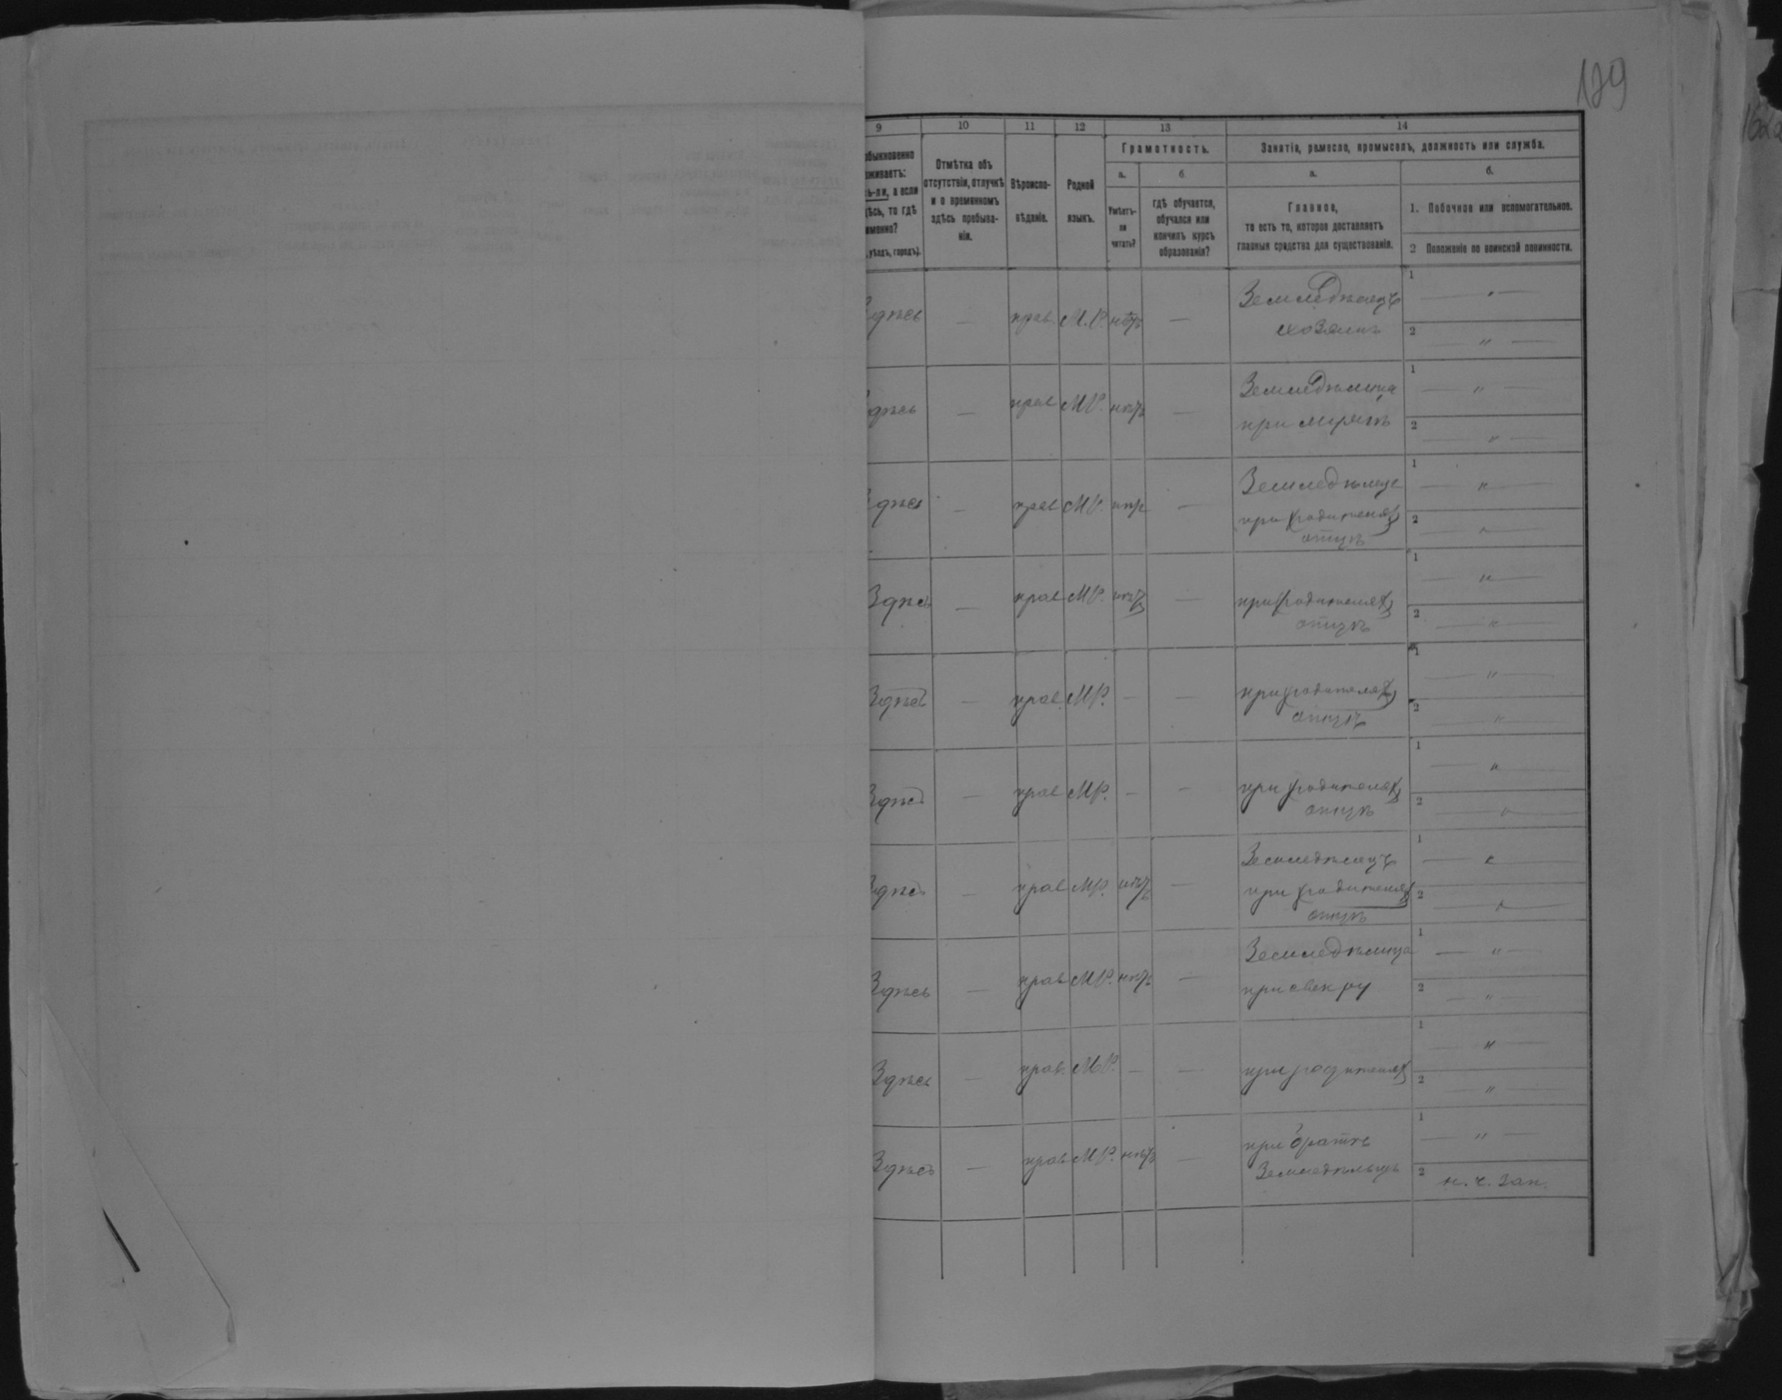 129
9 10 11 12 13 14
Грамотность. Занятіе, ремесло, промыселъ, должность или служба.
а. б. а. б.
Отмѣтка объ отсутствіи, отлучкѣ и о временномъ здѣсь пребываніи.
Вѣроисповѣданіе.
Родной языкъ.
Умѣетъ-ли читать?
гдѣ обучается, обучался или кончилъ курсъ образованія?
Главное,
то есть то, которое доставляетъ главныя средства для существованія.
1. Побочное или вспомогательное.
2 Положеніе по воинской повинности.
Здѣсь — прав. М.Р. нѣтъ — Земледѣлецъ 1 — " —
хозяинъ 2 — " —
Здѣсь — прав М.Р. нѣтъ — Земледѣлица 1 — " —
при мужѣ 2 — " —
Здѣсь — прав М.Р. нѣтъ — 1 — " —
при родителях 2 — " —
отцѣ
Здѣсь — прав М.Р. нѣтъ — при родителях 1 — " —
отцѣ 2 — " —
Здѣсь — прав. М.Р. — — при родителях 1 — " —
отцѣ 2 — " —
Здѣсь — прав М.Р. — — при родителях 1 — " —
отцѣ 2 — " —
Здѣсь — прав М.Р. нѣтъ — Земледѣлецъ 1 — " —
при родителях 2 — " —
отцѣ
Здѣсь — прав М.Р. нѣтъ — Земледѣлица 1 — " —
при свекру 2 — " —
Здѣсь — прав. М.Р. — — при родителях 1 — " —
2 — " —
Здѣсь — прав М.Р. нѣтъ — при братѣ 1 — " —
Земледѣлецъ 2 н. ч. зап.